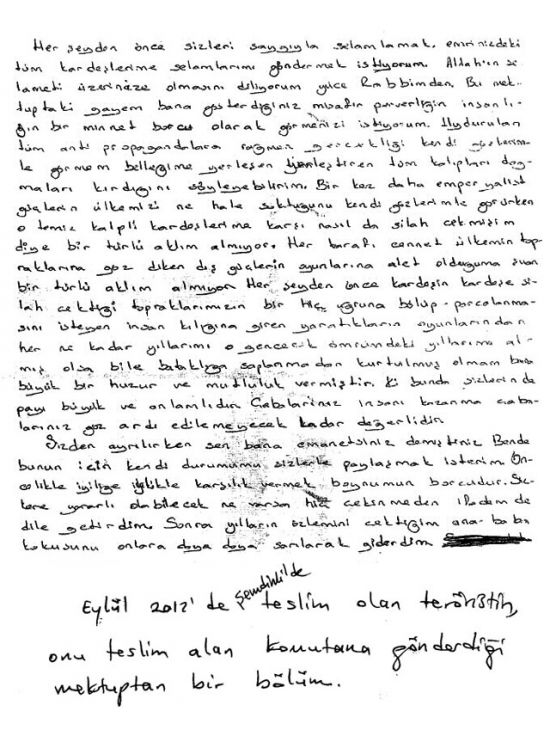 Her şeyden önce sizleri saygıyla selamlamak, emrinizdeki
tüm kardeşlerime selamlarımı göndermek istiyorum. Allah'ın se-
lameti üzerinize olmasını diliyorum yüce Rabbimden. Bu mek-
tuptaki gayem bana gösterdiğiniz misafir perverliğin insanlı-
ğın bir minnet borcu olarak görmenizi istiyorum. Uydurulan
tüm anti propagandalara rağmen gerçekliği kendi gözlerim-
le görmem belleğime yerleşen tüm kalıpları doğ-
maları kırdığını söyleyebilirim. Bir kez daha emperyalist
güçlerin ülkemizi ne hale soktuğunu kendi gözlerimle görürken
o temiz kalpli kardeşlerime karşı nasıl da silah çekmişim
diye bir türlü aklım almıyor. Her tarafı cennet ülkemin top-
raklarına göz diken dış güçlerin oyunlarına alet olduğuma
bir türlü aklım almıyor. Her şeyden önce kardeşin kardeşe si-
lah çektiği topraklarımızın bir hiç uğruna bölüp-parçalanma-
sını isteyen insan kılığına giren yaratıkların oyunlarından
her ne kadar yıllarımı o gencecik ömrümdeki yıllarımı al-
mış olsa bile bataklığa saplanmadan kurtulmuş olmam bana
büyük bir huzur ve mutluluk vermiştir. Ki bunda sizlerinde
payı büyük ve anlamlıdır. Çabalarınız insanı kazanma çaba-
larınız göz ardı edilemeyecek kadar değerlidir.
Sizden ayrılırken sen bana emanetsiniz demiştiniz Bende
bunun için kendi durumumu sizlerle paylaşmak isterim. Ön-
celikle iyiliğe iyilikle karşılık vermek boynumun borcudur. Siz-
lere yararlı olabilecek ne varsa hiç çekinmeden ifademde
dile getirdim. Sonra yılların özlemini çektiğim ana-baba
kokusunu onlara doya doya sarılarak giderdim
Eylül 2012'de Şemdinli'de teslim olan teröristin,
onu teslim alan komutana gönderdiği
mektuptan bir bölüm.